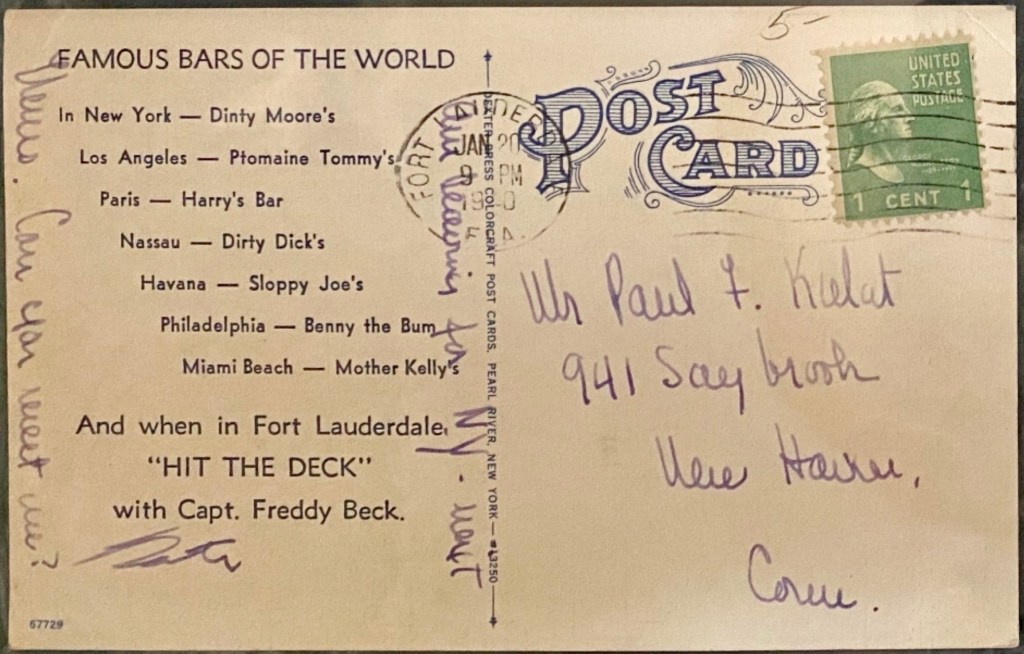 FAMOUS BARS OF THE WORLD
In New York — Dinty Moore's
Los Angeles — Ptomaine Tommy's
Paris — Harry's Bar
Nassau — Dirty Dick's
Havana — Sloppy Joe's
Philadelphia — Benny the Bum
Miami Beach — Mother Kelly's
And when in Fort Lauderdale,
"HIT THE DECK"
with Capt. Freddy Beck.
67729
am leaving for NY - next
Can you meet me?
DEXTER PRESS COLORCRAFT POST CARDS, PEARL RIVER, NEW YORK — #13250
5-
POST
CARD
FORT LAUDER
JAN 20
9 PM
UNITED
STATES
POSTAGE
1 CENT 1
Mr Paul F.
941 Saybrook
New Haven,
Conn.